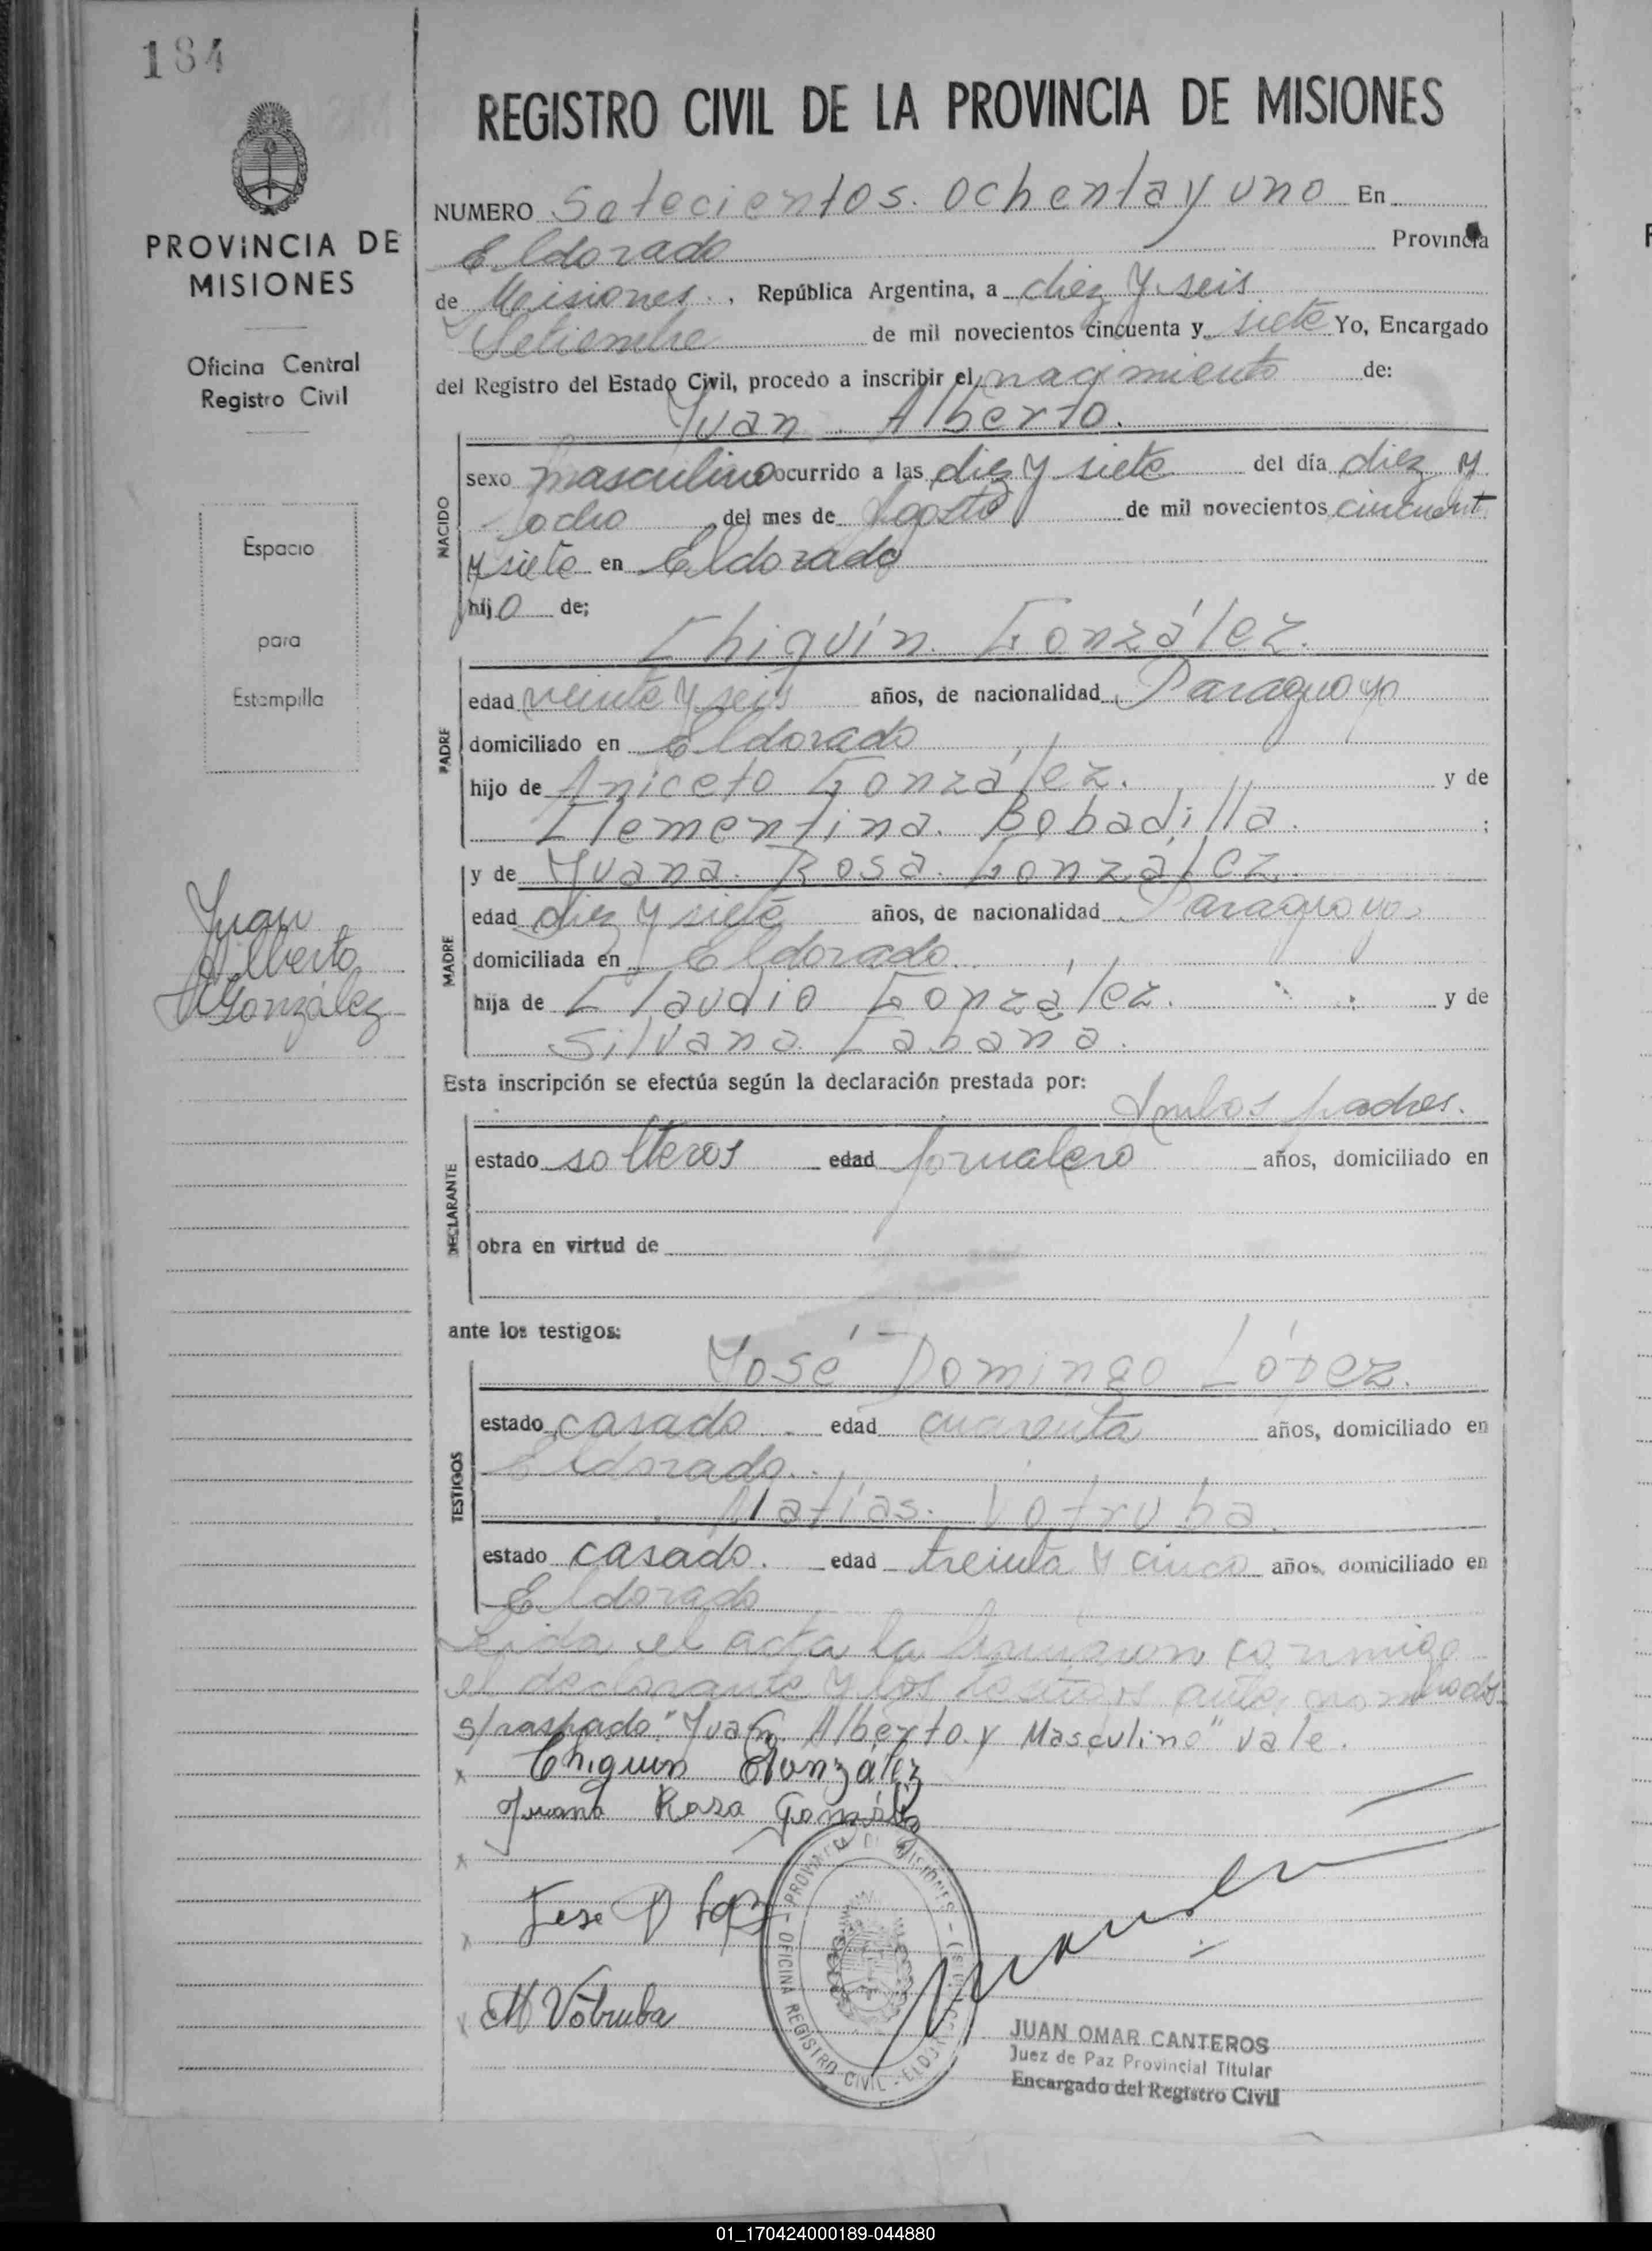 184
PROVINCIA DE
MISIONES
Oficina Central
Registro Civil
Espacio
para
Estampilla
Juan
Alberto
González
REGISTRO CIVIL DE LA PROVINCIA DE MISIONES
NUMERO Setecientos. ochenta y uno En
Eldorado Provincia
de Misiones., República Argentina, a diez y seis
Setiembre de mil novecientos cincuenta y siete Yo, Encargado
del Registro del Estado Civil, procedo a inscribir el nacimiento de:
Juan Alberto.
NACIDO
sexo masculino ocurrido a las diez y siete del día diez y
ocho del mes de Agosto de mil novecientos cincuent
y siete en Eldorado
hijo de;
Chiquín González.
PADRE
edad veinte y seis años, de nacionalidad Paraguayo
domiciliado en Eldorado
hijo de Aniceto González. y de
Clementina Bobadilla. ;
MADRE
y de Juana Rosa González.
edad diez y siete años, de nacionalidad Paraguaya
domiciliada en Eldorado
hija de Claudio González. y de
Silvana Cabana.
Esta inscripción se efectúa según la declaración prestada por:
Ambos padres.
DECLARANTE
estado solteros edad jornalero años, domiciliado en
obra en virtud de
ante los testigos:
José Domingo López.
TESTIGOS
estado casado edad cuarenta años, domiciliado en
Eldorado.
Matías Votruba.
estado casado. edad treinta y cinco años, domiciliado en
Eldorado
Leida el acta la firmaron conmigo
el declarante y los testigos antes nombrados
s/raspado "Juan Alberto y Masculino" vale.
x Chiquin González
Juana Rosa González
x
x Jose D Lopz
x M Votruba
PROVINCIA DE MISIONES
OFICINA REGISTRO CIVIL - ELDORADO
JUAN OMAR CANTEROS
Juez de Paz Provincial Titular
Encargado del Registro Civil
01_170424000189-044880